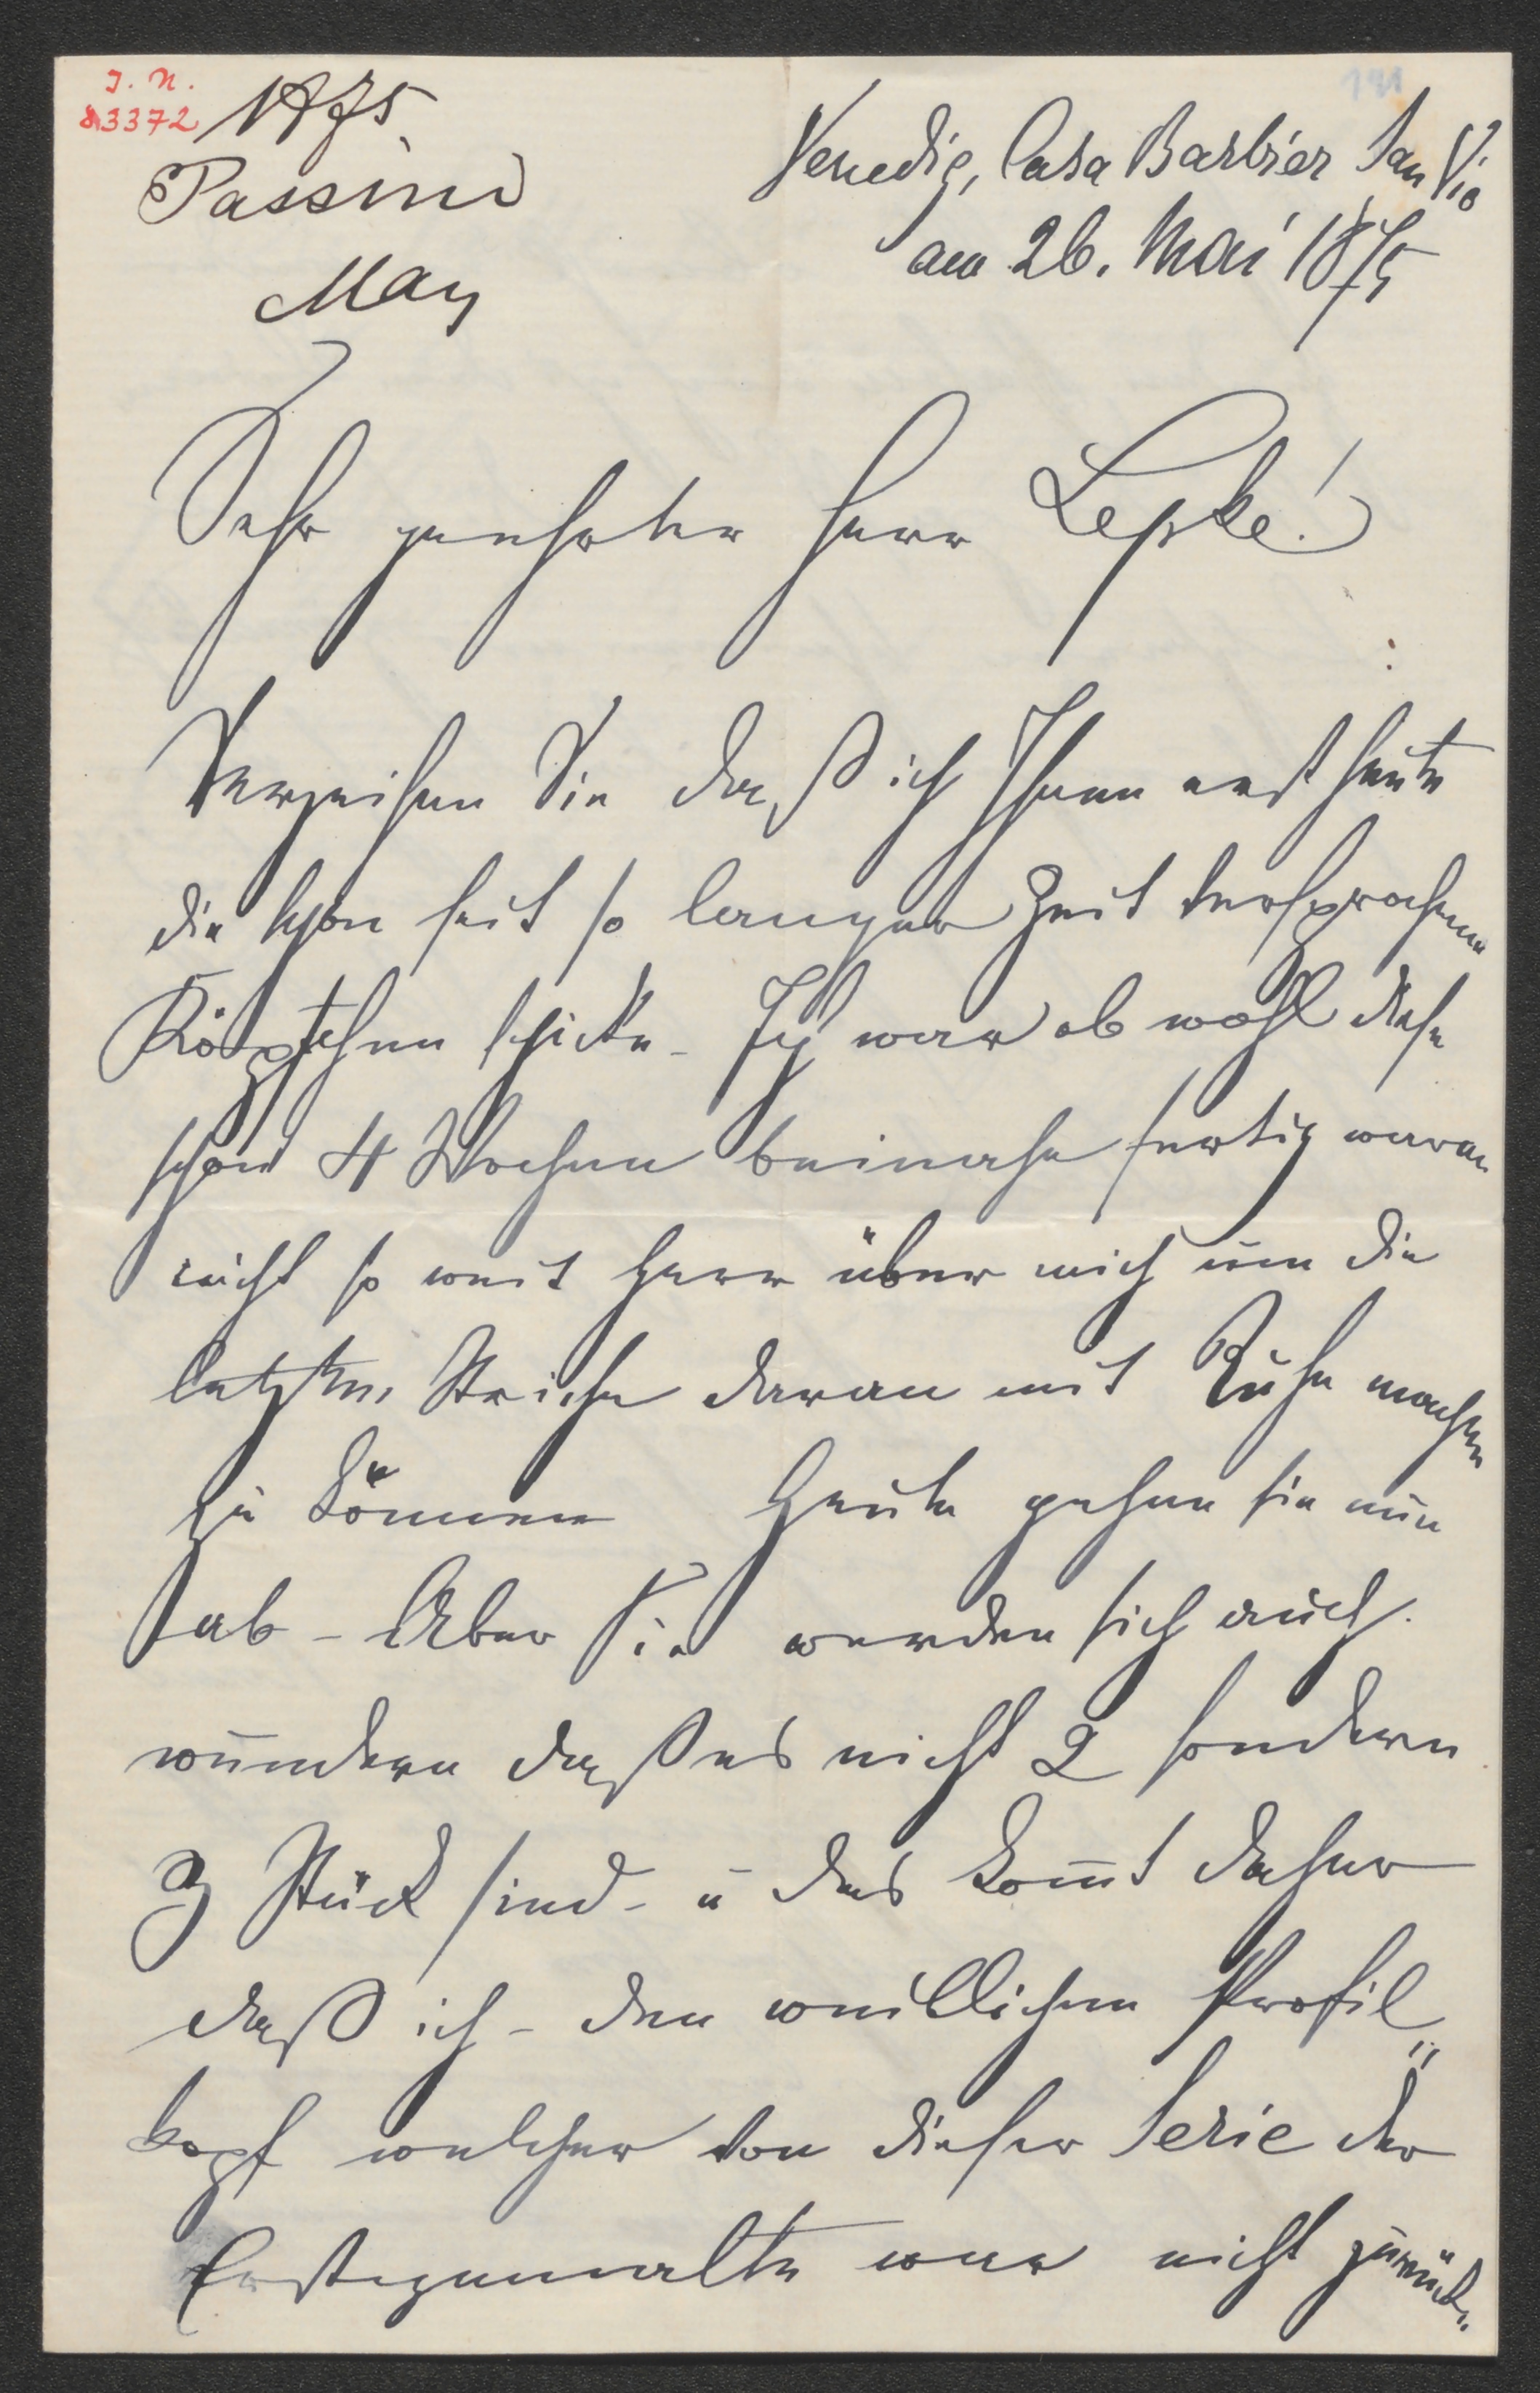 I. N.
83372
191
1875
Passini
May
Venedig, Casa Barbier San Vio
am 26. Mai 1875
Sehr geehrter Herr Lepke!
Verzeihen Sie daß ich Ihnen erst heute
die schon seit so langer Zeit versprochenen
Köpfchen schicke - Ich war ob wohl diese
schon 4 Wochen beinahe fertig waren
nicht so weit Herr über mich um die
letzten Striche daran mit Ruhe machen
zu können Heute gehen sie nun
ab - Aber Sie werden sich auch
wundern daß es nicht 2 sondern
3 Stück sind - u das kom̅t daher
daß ich - den weiblichen Profil„
kopf welcher von dieser Serie der
Erstgemalte war nicht zurück„